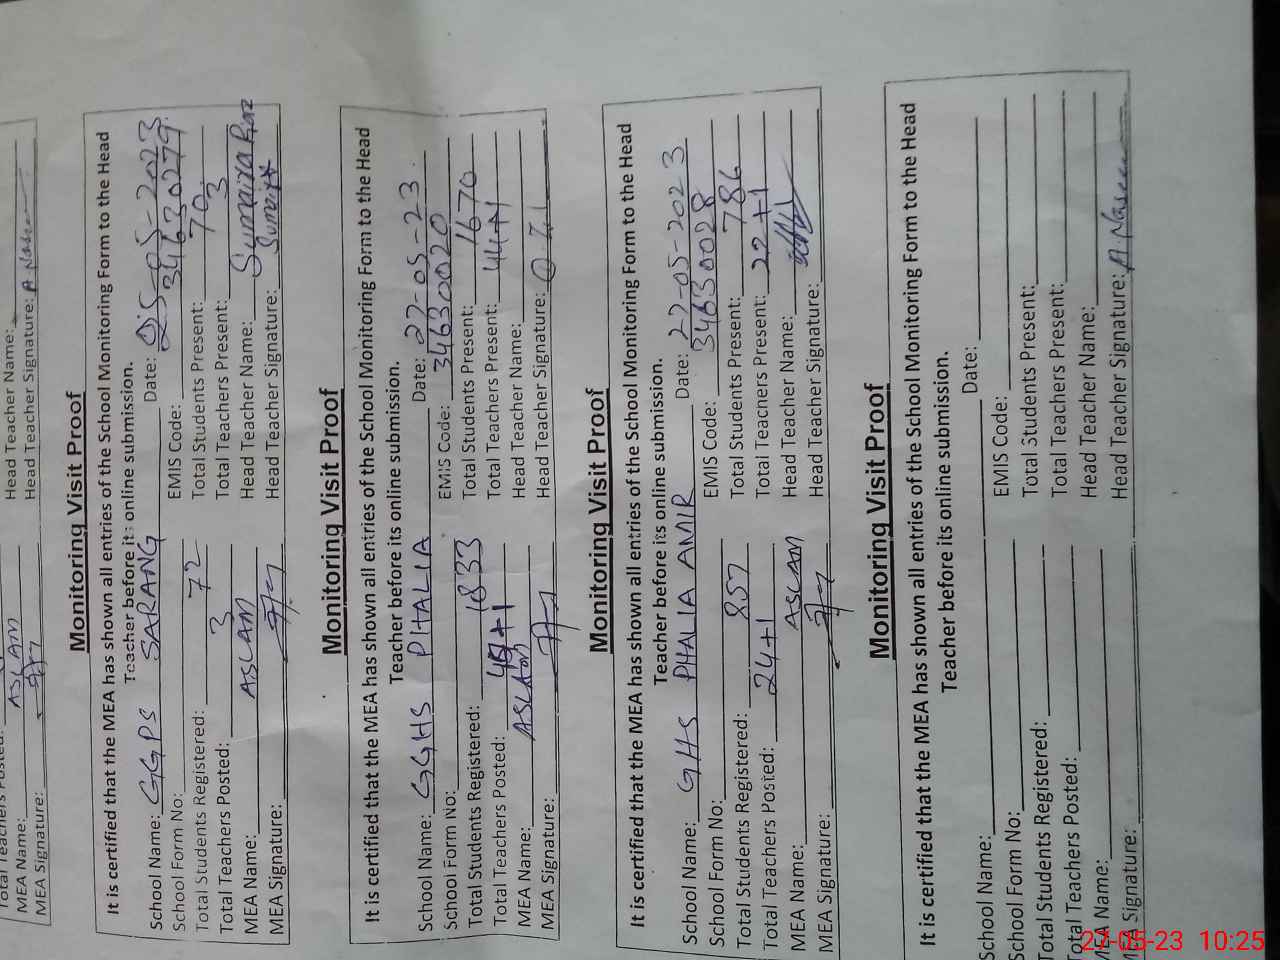 Total Teachers Posted:
MEA Name: ASLAM Head Teacher Name:
MEA Signature: Head Teacher Signature: A. Naseer
Monitoring Visit Proof
It is certified that the MEA has shown all entries of the School Monitoring Form to the Head
Teacher before its online submission.
School Name: GGPS SARANG Date: 25-05-2023
School Form No: EMIS Code: 34630279
Total Students Registered: 72 Total Students Present: 70
Total Teachers Posted: 3 Total Teachers Present: 3
MEA Name: ASLAM Head Teacher Name: Sumaira
MEA Signature: Head Teacher Signature:
Monitoring Visit Proof
It is certified that the MEA has shown all entries of the School Monitoring Form to the Head
Teacher before its online submission.
School Name: GGHS PHALIA Date: 27-05-23
School Form No: EMIS Code: 34630020
Total Students Registered: 1833 Total Students Present: 1670
Total Teachers Posted: Total Teachers Present: 44+1
MEA Name: ASLAM Head Teacher Name:
MEA Signature: Head Teacher Signature:
Monitoring Visit Proof
It is certified that the MEA has shown all entries of the School Monitoring Form to the Head
Teacher before its online submission.
School Name: GHS PHALIA AMIR Date: 27-05-2023
School Form No: EMIS Code: 34630028
Total Students Registered: 857 Total Students Present: 786
Total Teachers Posted: 24+1 Total Teachers Present: 22+1
MEA Name: ASLAM Head Teacher Name:
MEA Signature: Head Teacher Signature:
Monitoring Visit Proof
It is certified that the MEA has shown all entries of the School Monitoring Form to the Head
Teacher before its online submission.
School Name: Date:
School Form No: EMIS Code:
Total Students Registered: Total Students Present:
Total Teachers Posted: Total Teachers Present:
MEA Name: Head Teacher Name:
MEA Signature: Head Teacher Signature: A. Naseer
27-05-23 10:25